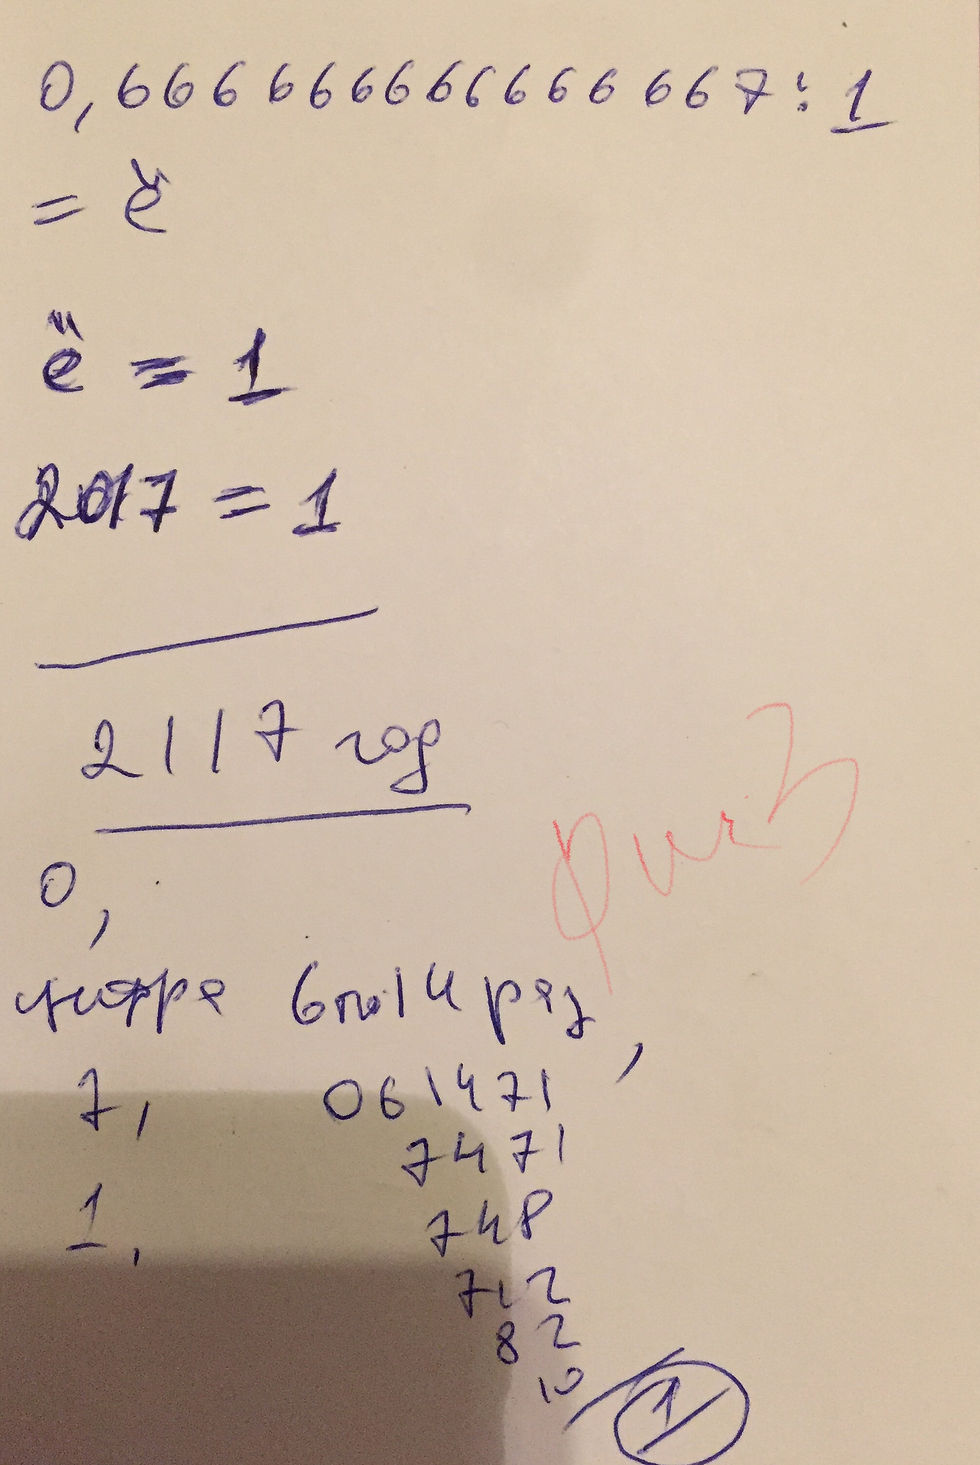 0,66666666666666667:1
= ё
ё = 1
2017 = 1
2117 год
0,
цифра 6 по 14 раз,
7, 061471
7471
1, 748
712
82
10 1
рис 3